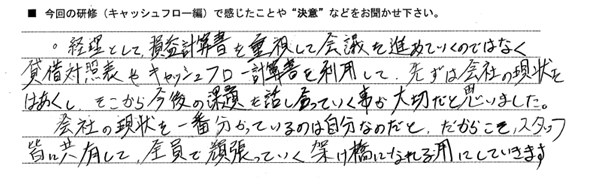 ■ 今回の研修（キャッシュフロー編）で感じたことや“決意”などをお聞かせ下さい。
。経理として損益計算書を重視して会議を進めていくのではなく
貸借対照表やキャッシュフロー計算書を利用して、先ずは会社の現状を
はあくし、そこから今後の課題を話し合っていく事が大切だと思いました。
会社の現状を一番分かっているのは自分なのだと、だからこそ、スタッフ
皆に共有して、全員で頑張っていく架け橋になれる用にしていきます